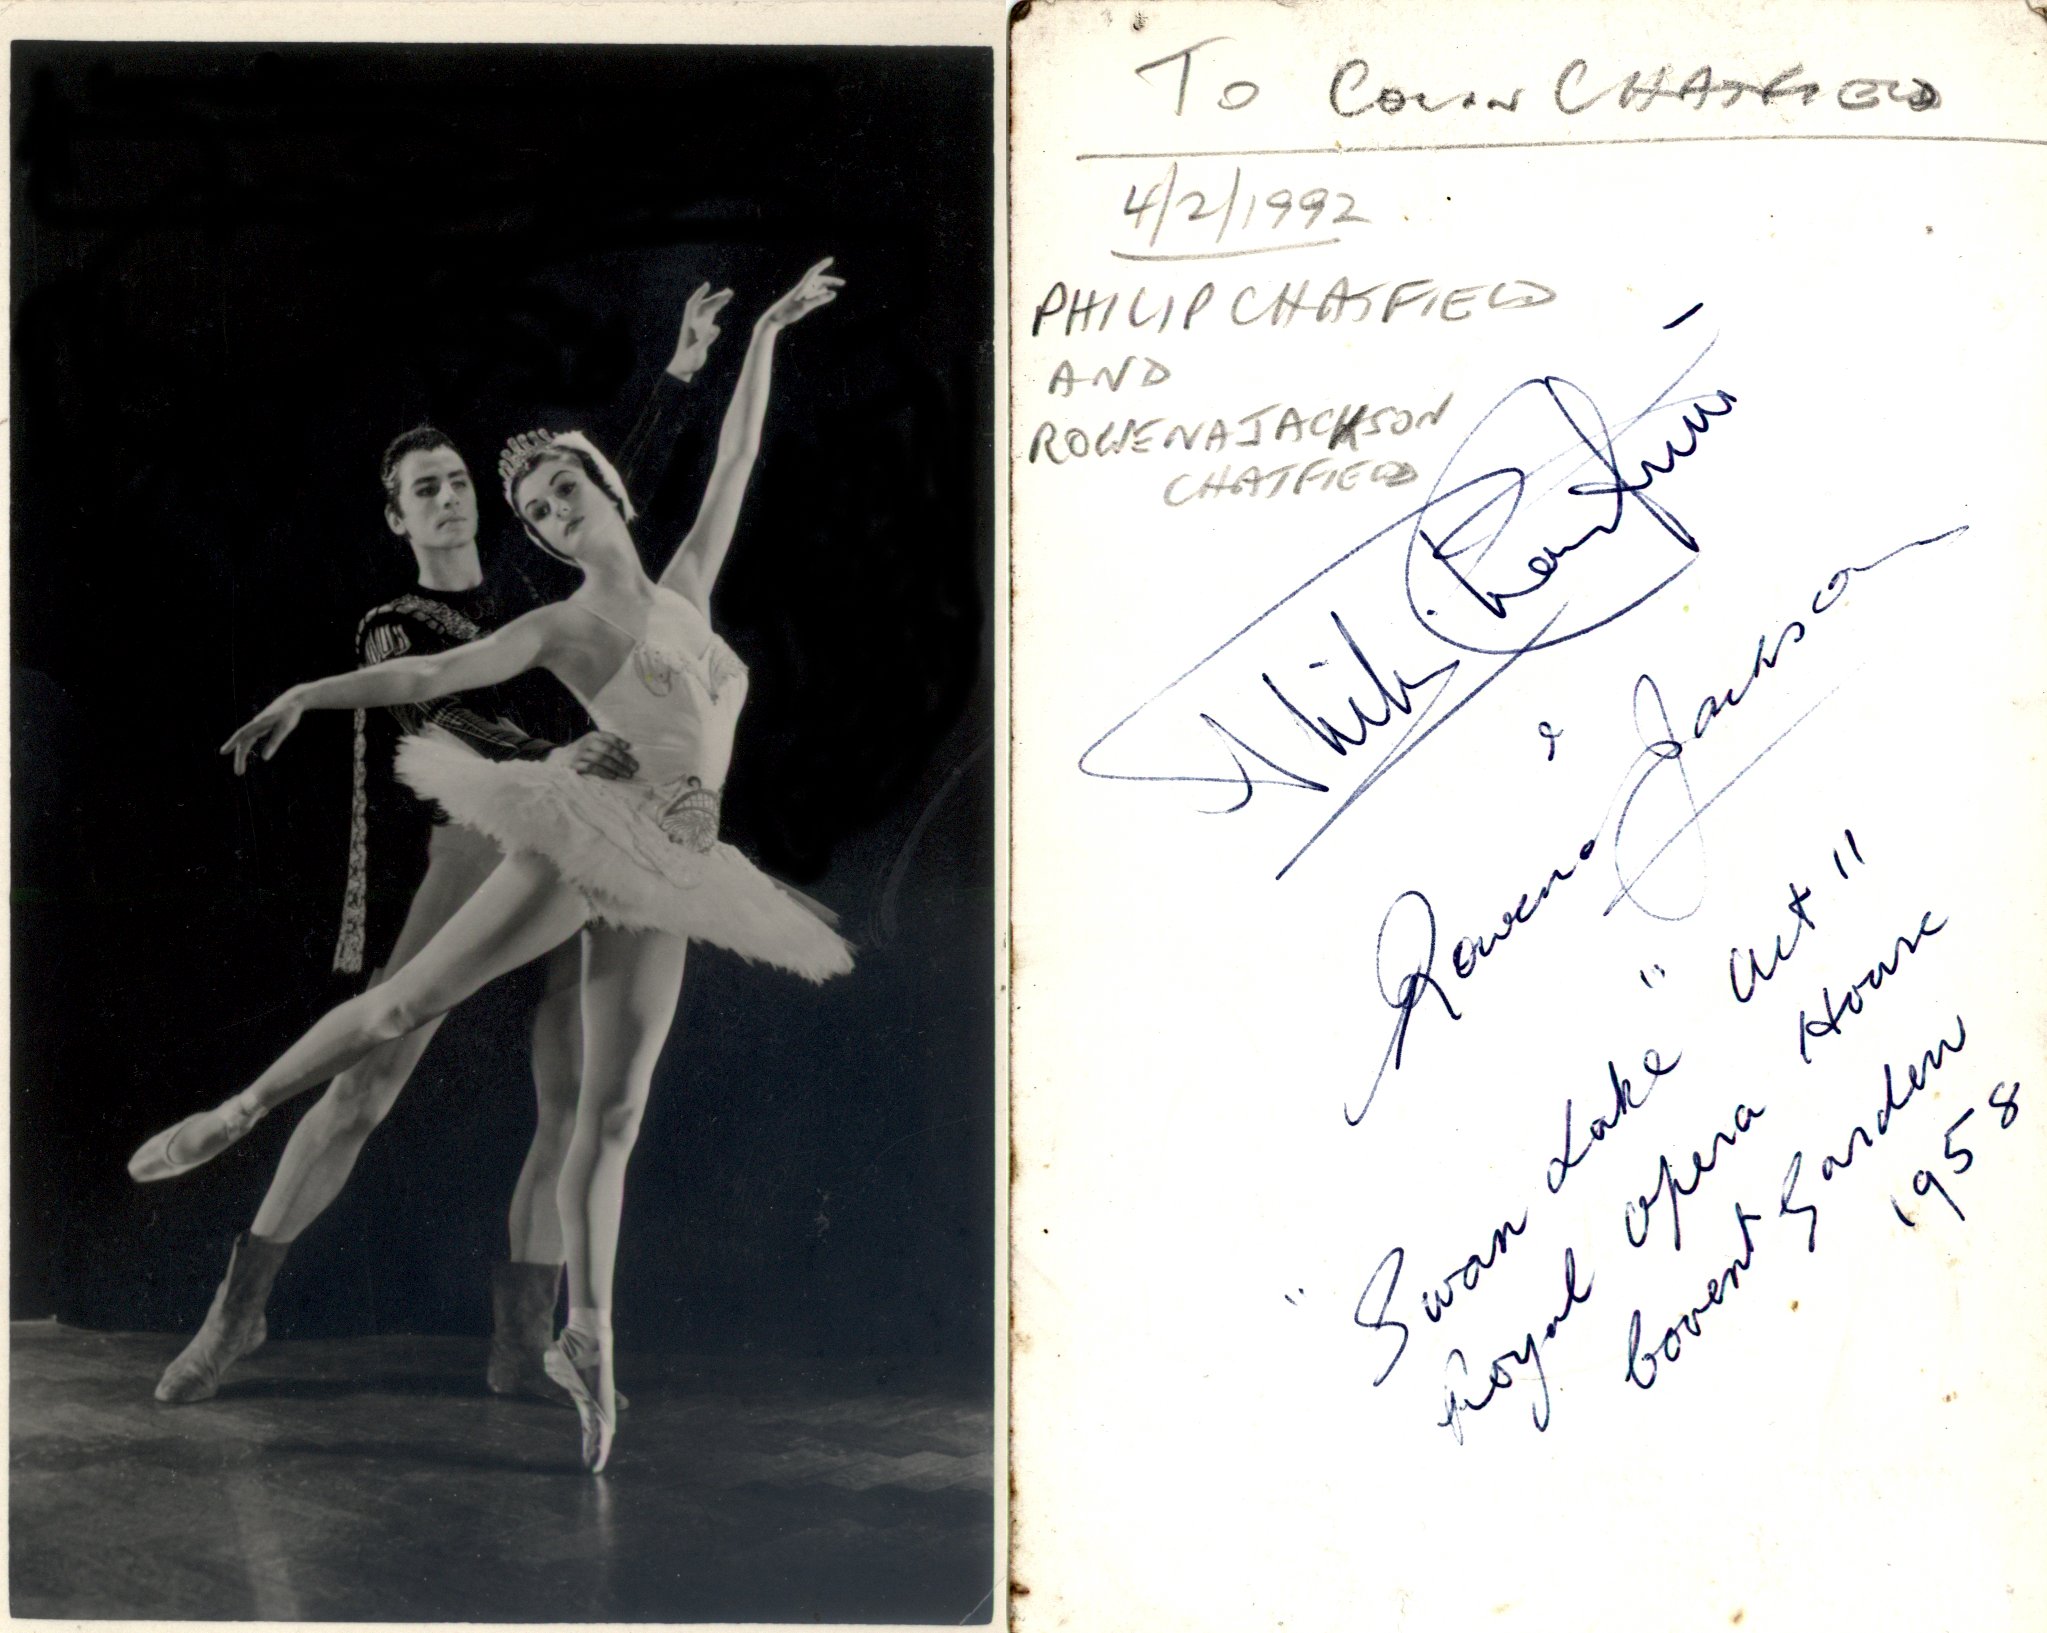 TO COLIN CHATFIELD
4/2/1992
PHILIP CHATFIELD
AND
ROWENA JACKSON
CHATFIELD
Philip Chatfield
&
Rowena Jackson
"Swan Lake" Act II
Royal Opera House
Covent Garden
1958